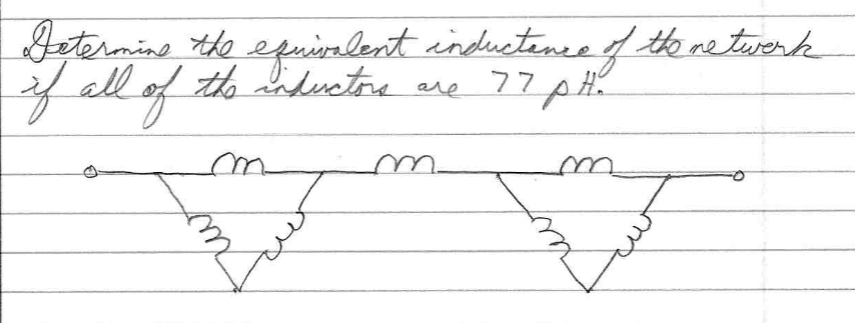 Determine the equivalent inductance of the network
if all of the inductors are 77 pH.